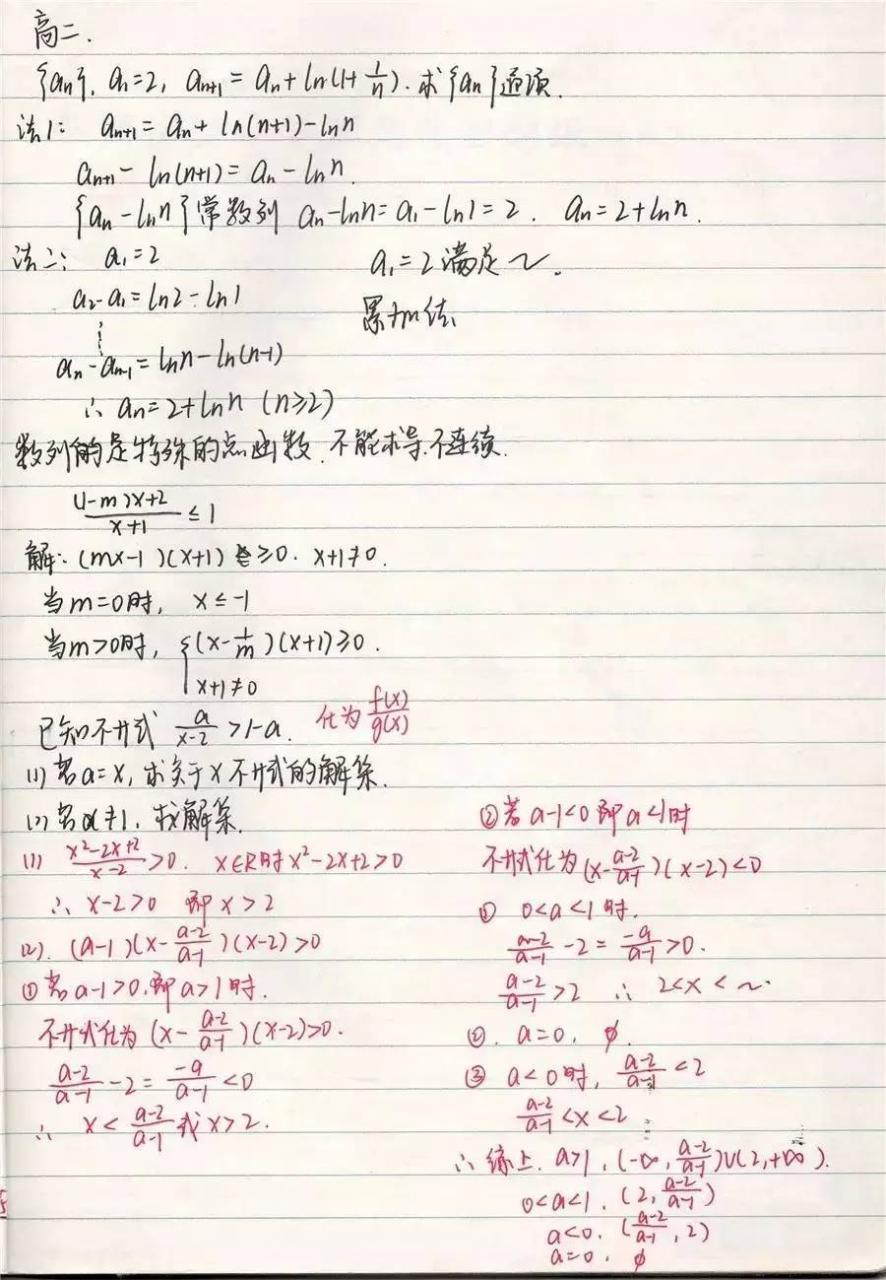 高二.
{aₙ}, a₁=2, aₙ₊₁ = aₙ + ln(1+1/n). 求{aₙ}通项.
法1: aₙ₊₁ = aₙ + ln(n+1)-lnn
aₙ₊₁ - ln(n+1) = aₙ - lnn.
{aₙ-lnn}常数列 aₙ-lnn = a₁-ln1 = 2. aₙ=2+lnn.
法二: a₁=2
a₂-a₁=ln2-ln1
⋮
aₙ-aₙ₋₁=lnn-ln(n-1)
∴ aₙ=2+lnn (n≥2)
a₁=2满足~.
累加法
数列的是特殊的点函数.不能求导.不连续.
((1-m)x+2)/(x+1) ≤ 1
解: (mx-1)(x+1) ≥0. x+1≠0.
当m=0时, x≤-1
当m>0时, {(x-1/m)(x+1)≥0.
x+1≠0
已知不井式 a/(x-2) >1-a. 化为 f(x)/g(x)
(1)若a=x, 求关于x不井式的解集.
(2)若a≠1, 求解集.
(1) (x²-2x+2)/(x-2) >0. x∈R时x²-2x+2>0
∴ x-2>0 即x>2
(2). (a-1)(x-(a-2)/(a-1))(x-2)>0
①若a-1>0.即a>1时.
不井式化为 (x-(a-2)/(a-1))(x-2)>0.
(a-2)/(a-1) -2= -a/(a-1) <0
∴ x< (a-2)/(a-1) 或x>2.
②若a-1<0即a<1时
不井式化为(x-(a-2)/(a-1))(x-2)<0
① 0<a<1时.
(a-2)/(a-1) -2= -a/(a-1) >0.
(a-2)/(a-1) >2 ∴ 2<x<~.
②. a=0, ϕ.
③ a<0时, (a-2)/(a-1) <2
(a-2)/(a-1) <x<2
∴ 综上. a>1, (-∞, (a-2)/(a-1))∪(2,+∞).
0<a<1. (2, (a-2)/(a-1))
a<0. ((a-2)/(a-1), 2)
a=0. ϕ